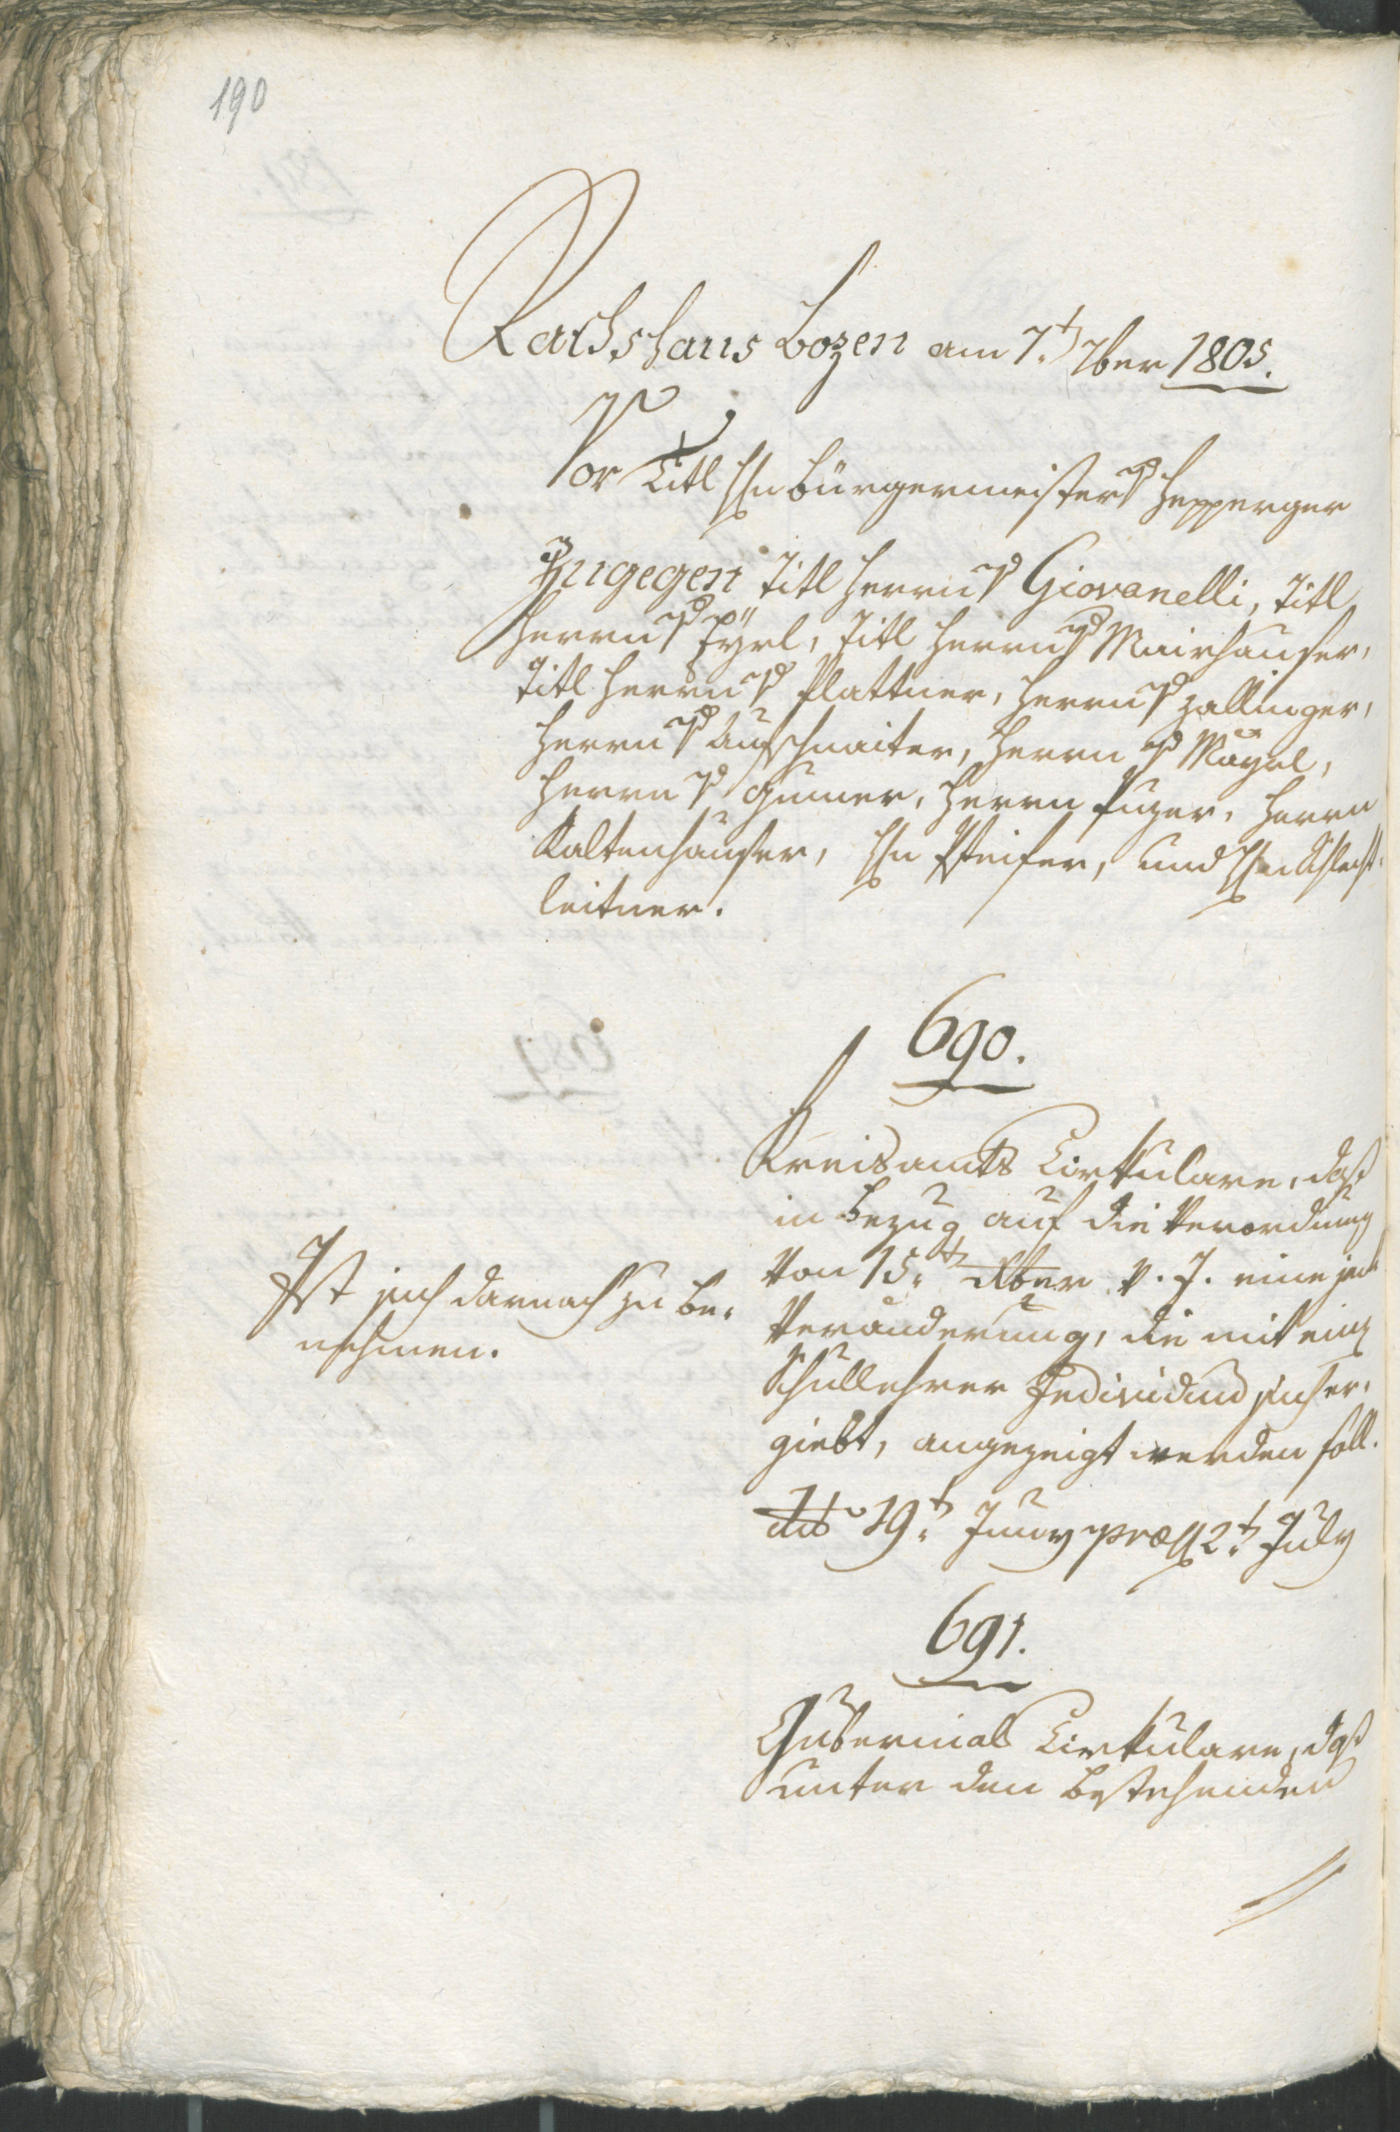 190
Rathshaus Bozen am 7t 7ber 1805.
Vor Titl Hn Bürgermeister v Hepperger
Zugegen Titl Herrn v Giovanelli, Titl
Herrn v Eyrl, Titl Herrn v Mairhauser,
Titl Herrn v Plattner, Herrn v Zallinger,
Herrn v Aufschnaiter, Herrn v Mayrl,
Herrn v Gumer, Herrn Puzer, Herrn
Kaltenhauser, Hn Pfeifer, und Hn Schlecht-
leitner.
690.
Kreisamts Cirkulare, daß
in Bezug auf die Verordnung
von 15t Xber v. J. eine jede
Veränderung, die mit einem
Schullehrer Individuo sich er-
giebt, angezeigt werden soll.
dto 19t Juny præs 2t July
Ist sich darnach zu be-
nehmen.
691.
Gubernial Cirkulare, daß
unter den bestehenden